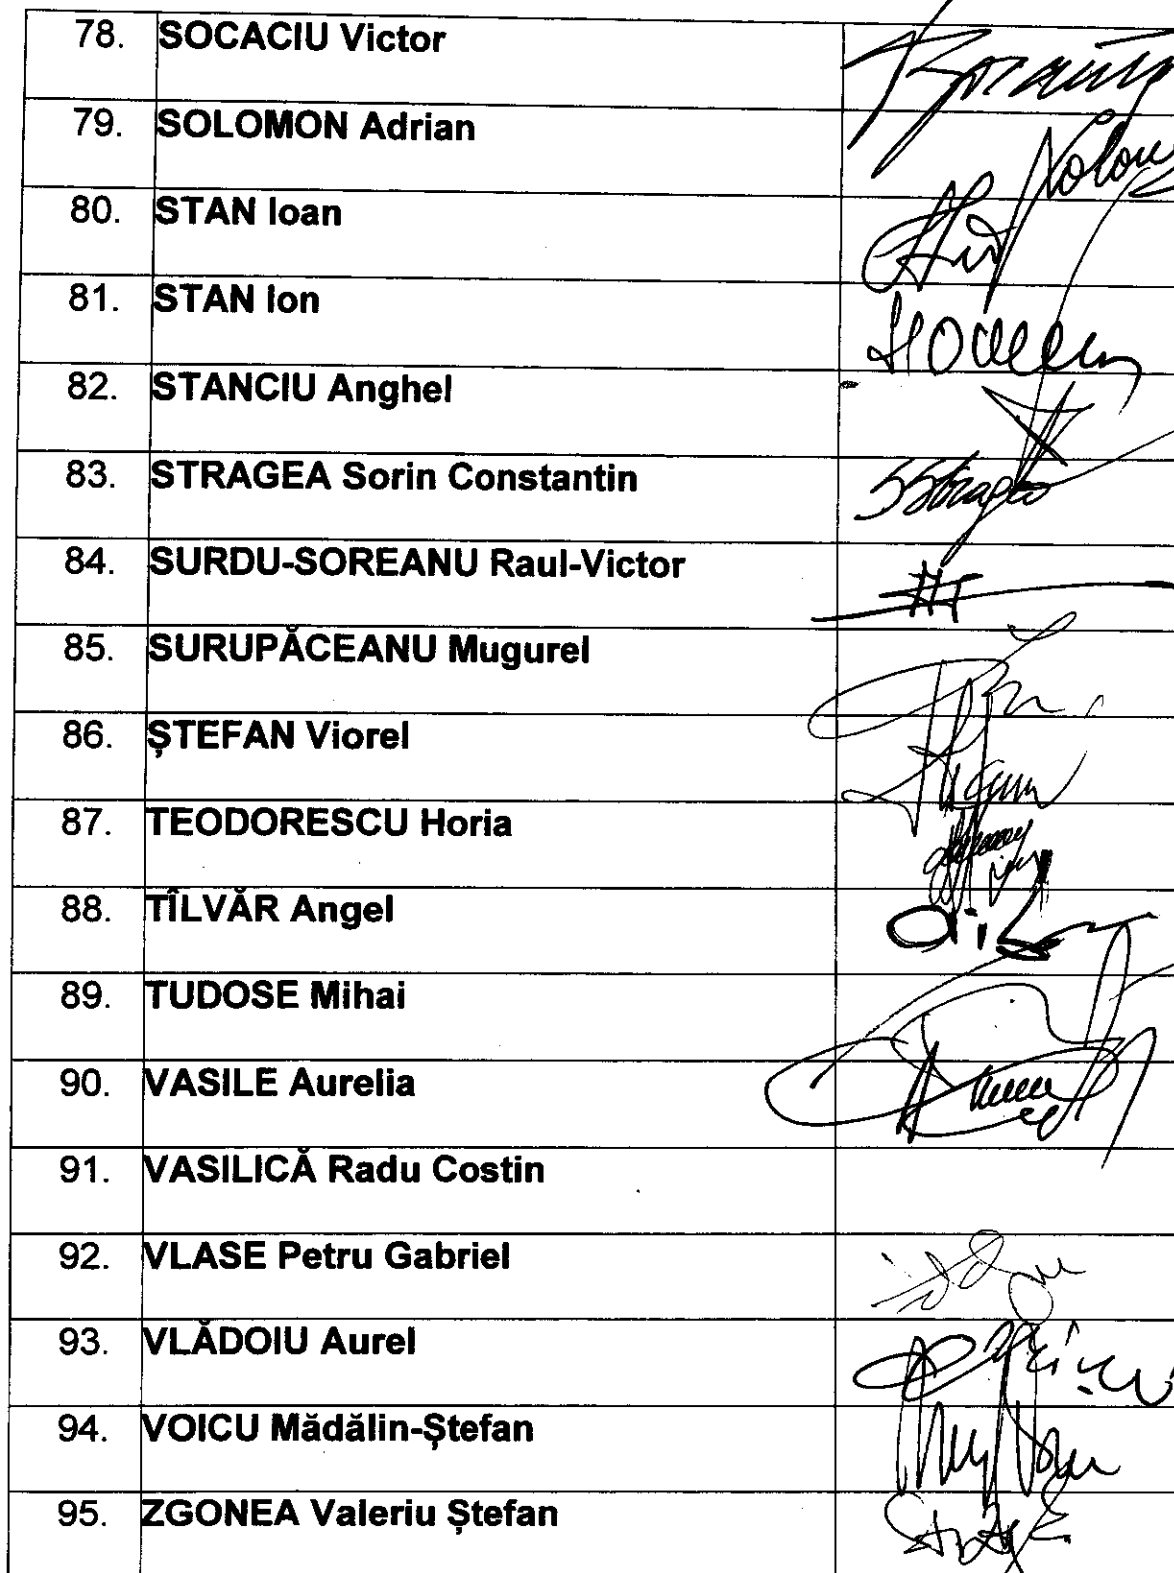 78. SOCACIU Victor
79. SOLOMON Adrian
80. STAN Ioan
81. STAN Ion
82. STANCIU Anghel
83. STRAGEA Sorin Constantin
84. SURDU-SOREANU Raul-Victor
85. SURUPĂCEANU Mugurel
86. ȘTEFAN Viorel
87. TEODORESCU Horia
88. TÎLVĂR Angel
89. TUDOSE Mihai
90. VASILE Aurelia
91. VASILICĂ Radu Costin
92. VLASE Petru Gabriel
93. VLĂDOIU Aurel
94. VOICU Mădălin-Ștefan
95. ZGONEA Valeriu Ștefan